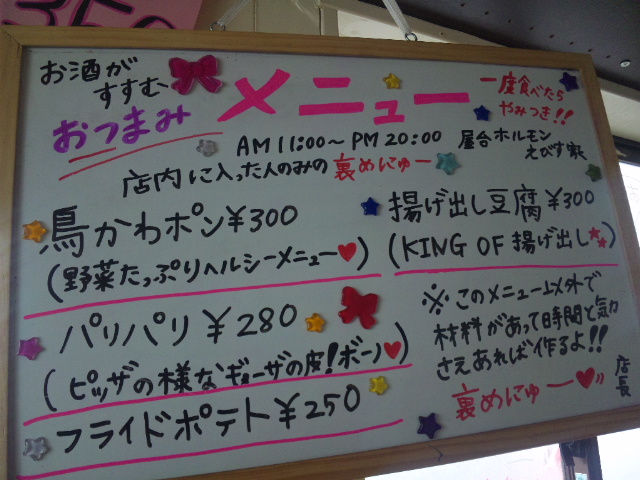 お酒が
すすむ
おつまみ
メニュー
一度食べたら
やみつき!!
AM 11:00〜PM 20:00
屋台ホルモン
えびす家
店内に入った人のみの裏めにゅー
鳥かわポン¥300
(野菜たっぷりヘルシーメニュー♥)
揚げ出し豆腐¥300
(KING OF 揚げ出し★★)
パリパリ¥280
(ピッザの様なギョーザの皮!ボーノ♥)
フライドポテト¥250
※このメニュー以外で
材料があって時間と気力
さえあれば作るよ!!
店長
裏めにゅー♥